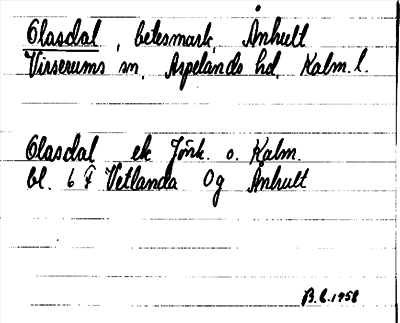 Olasdal, betesmark, Ånhult
Virserums sn, Aspelands hd, Kalm. l.
Olasdal ek Jönk. o. Kalm.
bl. 6 F Vetlanda Og Ånhult
B.E. 1958